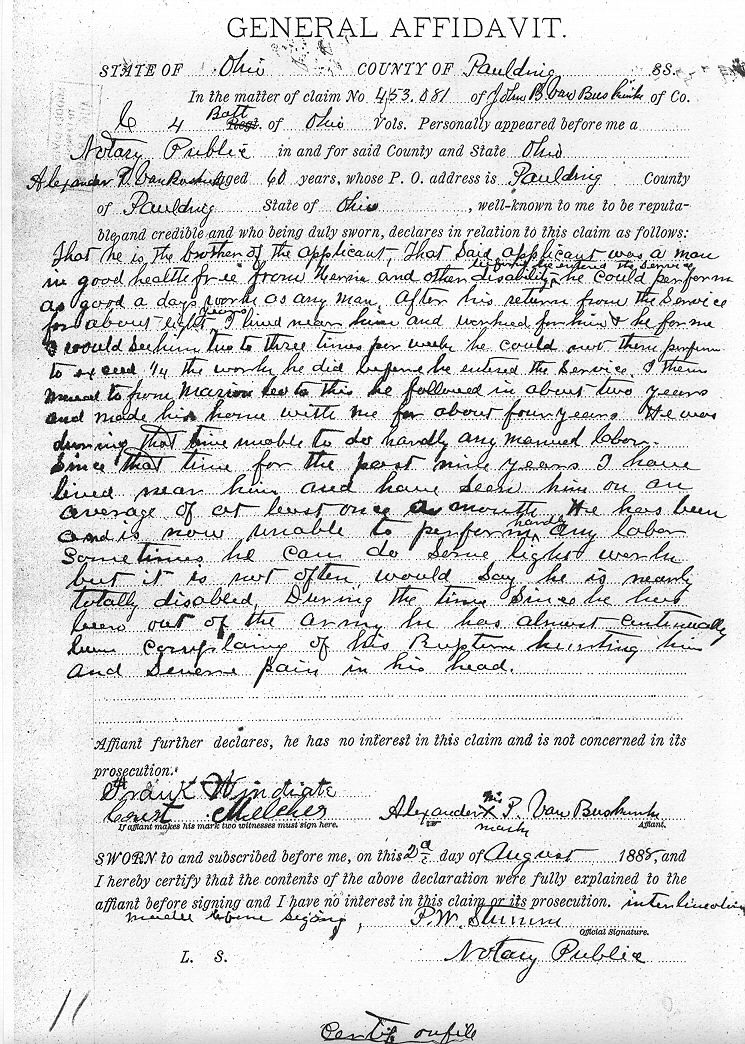 GENERAL AFFIDAVIT.
STATE OF Ohio COUNTY OF Paulding SS.
In the matter of claim No 453.081 of John B Van Buskirk of Co.
C 4 Batt Regt. of Ohio Vols. Personally appeared before me a
Notary Public in and for said County and State Ohio
Alexander P. Van Buskirk aged 60 years, whose P. O. address is Paulding County
of Paulding State of Ohio, well-known to me to be reputa-
ble and credible and who being duly sworn, declares in relation to this claim as follows:
That he is the brother of the applicant, That Said applicant was a man
before he entered the service
in good health free from Hernia and other disability he could perform
as good a days work as any man, after his return from the Service
years
for about eight I lived near him and worked for him & he for me
I would see him two to three times per week he could not then perform
to exceed 1/4 the work he did before he entered the Service. I then
moved to from Marion to this he followed in about two years
and made his home with me for about four years He was
during that time unable to do hardly any manuel labor.
Since that time for the past nine years I have
lived near him and have seen him on an
average of at least once a month He has been
hardly
and is now unable to perform any labor
Sometimes he can do some light work
but it is not often, would Say he is nearly
totally disabled, During the time Since he has
been out of the army he has almost continually
been complaing of his Rupture hurting him
and Severe pain in his head.
Affiant further declares, he has no interest in this claim and is not concerned in its
prosecution.
Frank Windiate
Melcher
his
Alexander X P. Van Buskirk
mark
If affiant makes his mark two witnesses must sign here.
Affiant.
SWORN to and subscribed before me, on this 2d day of August 1888, and
I hereby certify that the contents of the above declaration were fully explained to the
affiant before signing and I have no interest in this claim or its prosecution. interlineation
made before signing,
P.W.
Official Signature.
L. S.
Notary Public
11
Certif on file